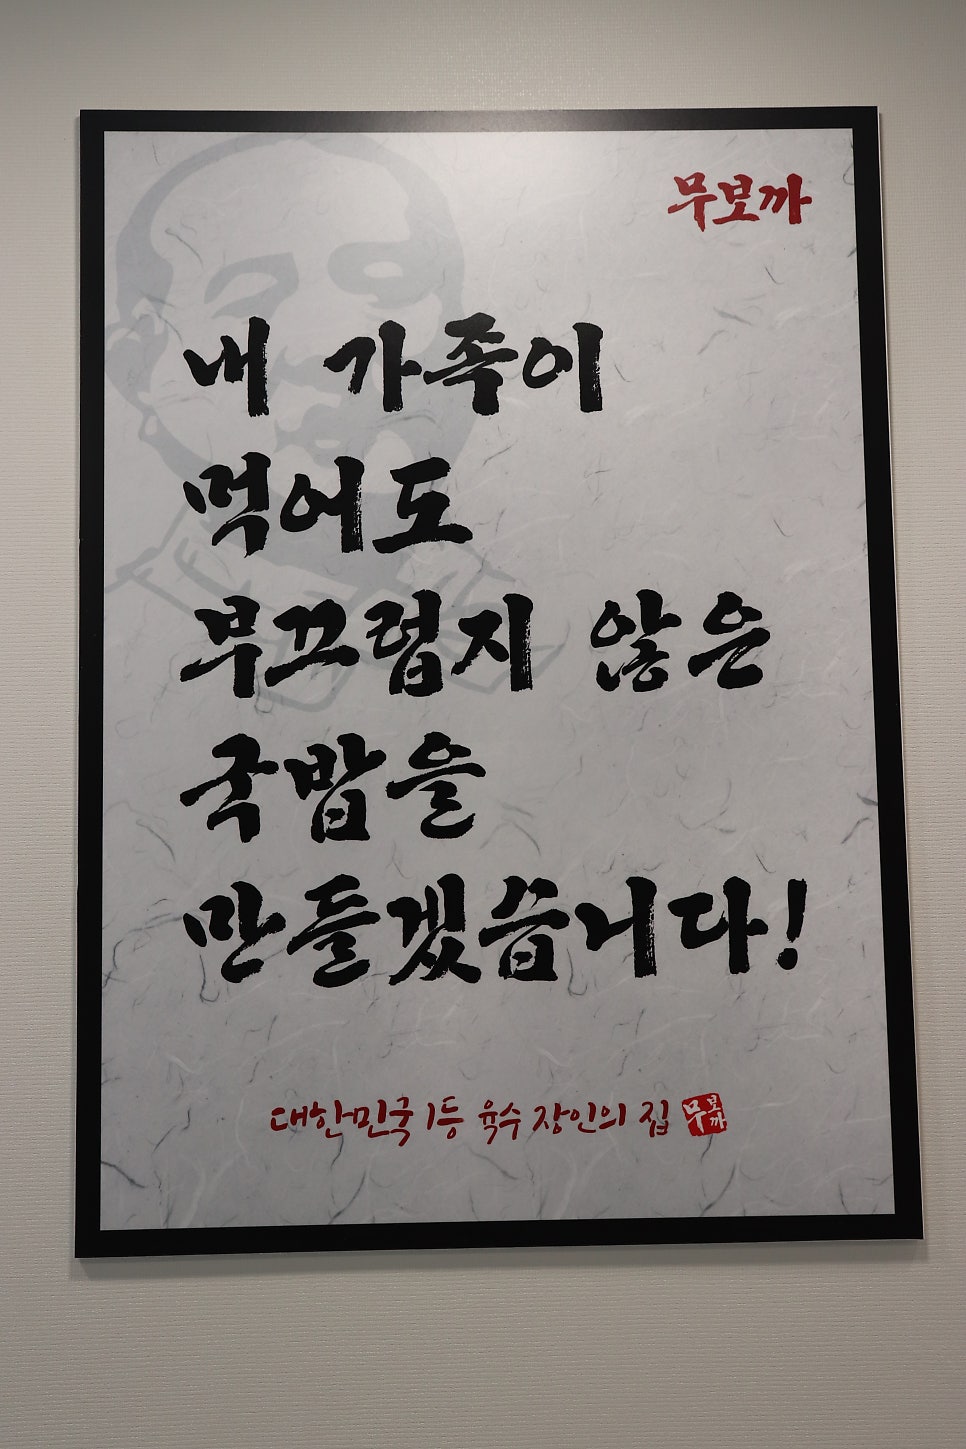 무보까
내 가족이
먹어도
부끄럽지 않은
국밥을
만들겠습니다!
대한민국 1등 육수 장인의 집 무보까